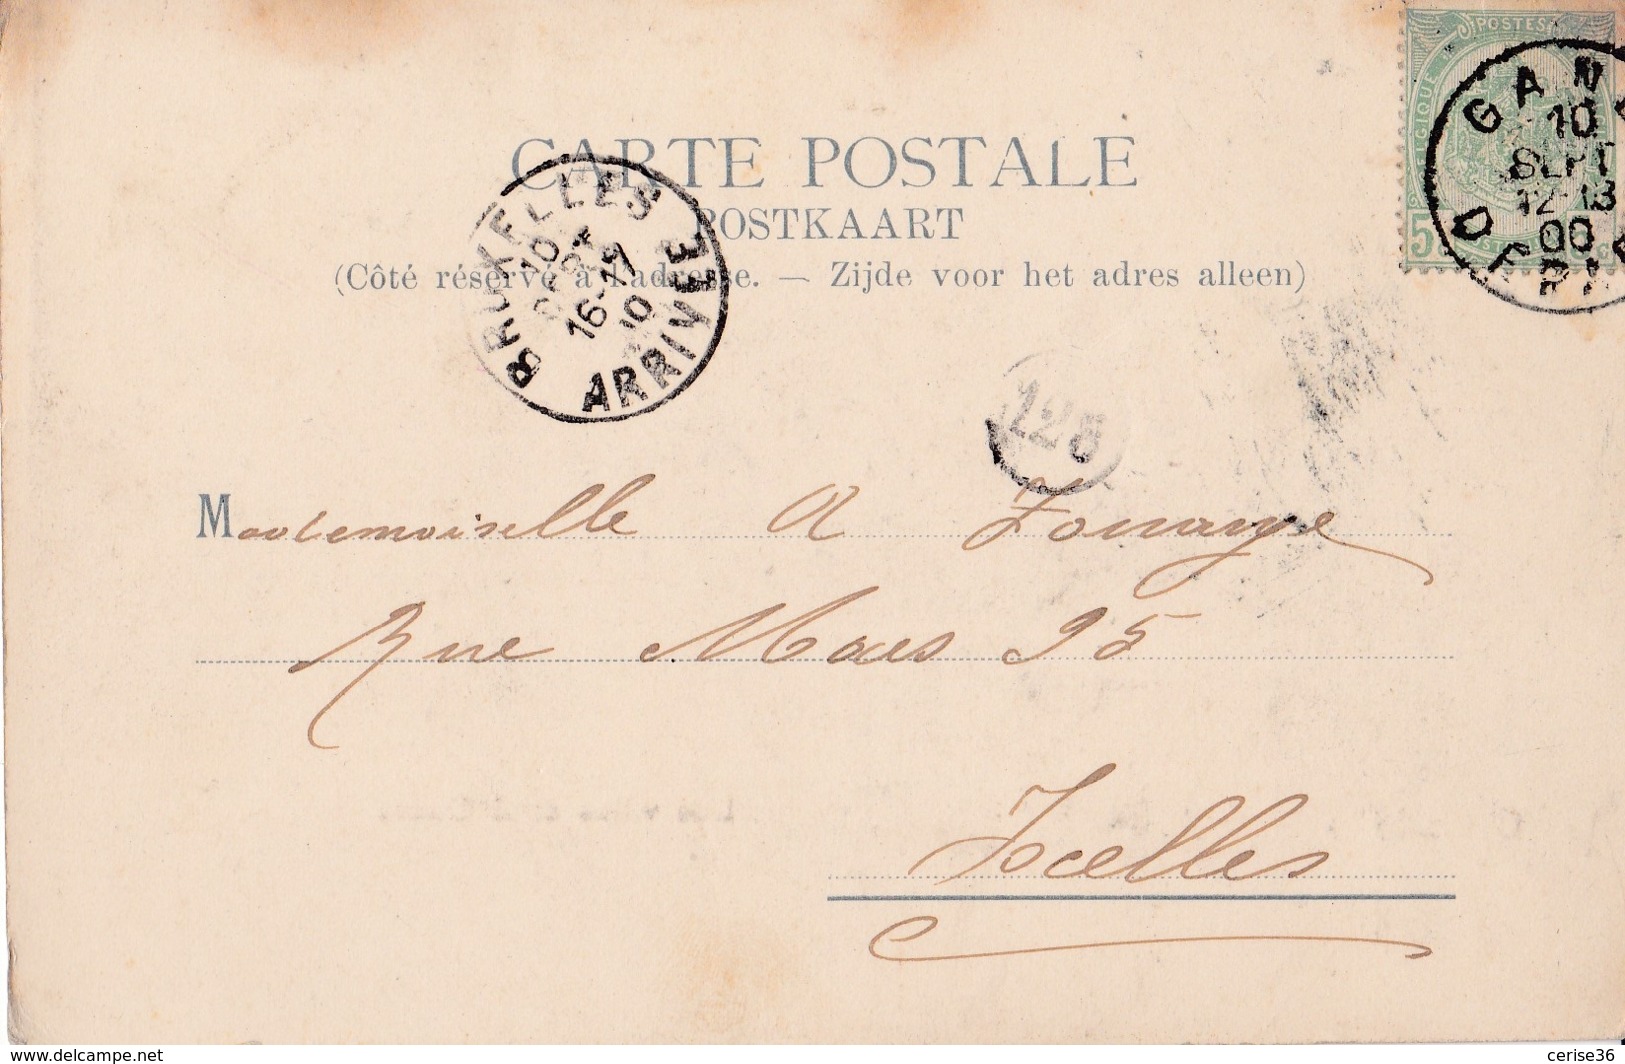 POSTES
BELGIQUE
5
GAND
10
SEPT
12-13
00
CARTE POSTALE
POSTKAART
(Côté réservé à l'adresse. — Zijde voor het adres alleen)
BRUXELLES
10
16-17
ARRIVEE
128
Mademoiselle A
Rue Maes 95
Ixelles
www.delcampe.net
cerise36